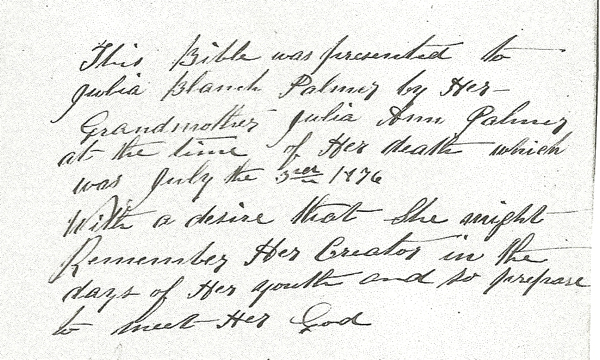 This Bible was presented to
Julia Blanch Palmer by Her
Grandmother Julia Ann Palmer
at the time of Her death which
was July the 3rd 1876
With a desire that She might
Remember Her Creator in the
days of Her youth and so prepare
to meet Her God